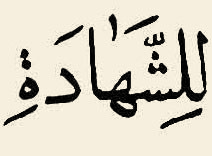 لِلشَّهَٰدَةِ